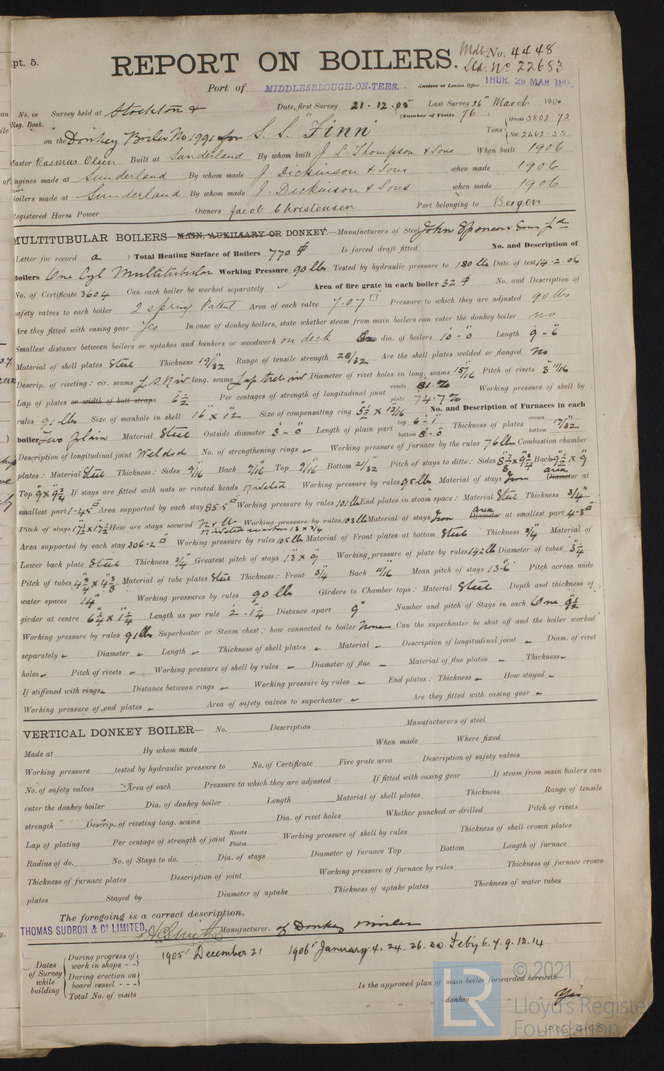 pt. 5.
REPORT ON BOILERS.
Mdl No. 4448
Sld No 22683
Port of MIDDLESBROUGH-ON-TEES.
Received at London Office THUR. 29 MAR 190
No. in Survey held at Stockton &
Reg. Book.
Date, first Survey 21-12-05 Last Survey 26 March 1906
(Number of Visits 76)
on the Donkey Boiler No 1991 for S. S. "Finn"
Tons { Gross 3803.73
Net 2463.
Master Rasmus Olsen Built at Sunderland By whom built J L Thompson & Sons When built 1906
Engines made at Sunderland By whom made J. Dickinson & Sons when made 1906
Boilers made at Sunderland By whom made J. Dickinson & Sons when made 1906
Registered Horse Power Owners Jacob Christensen Port belonging to Bergen
MULTITUBULAR BOILERS MAIN, AUXILIARY OR DONKEY.—Manufacturers of Steel John Spencer & Sons Ld
Letter for record a ) Total Heating Surface of Boilers 770 Is forced draft fitted No. and Description of
Boilers One Cyl Multitubular Working Pressure 90 lbs Tested by hydraulic pressure to 180 lbs Date of test 14.2.06
No. of Certificate 3604 Can each boiler be worked separately Area of fire grate in each boiler 32 No. and Description of
safety valves to each boiler 2 spring Patent Area of each valve 7.07 Pressure to which they are adjusted 90 lbs
Are they fitted with easing gear Yes In case of donkey boilers, state whether steam from main boilers can enter the donkey boiler no
Smallest distance between boilers or uptakes and bunkers or woodwork on deck dia. of boilers 10-0 Length 9-6
Material of shell plates Steel Thickness 19/32 Range of tensile strength 28/32 Are the shell plates welded or flanged No
Descrip. of riveting: cir. seams long. seams Lap treb riv Diameter of rivet holes in long. seams 15/16 Pitch of rivets 3 11/16
Lap of plates or width of butt straps 6 1/2 Per centages of strength of longitudinal joint rivets 81.% plates 74.7% Working pressure of shell by
rules 91 lbs Size of manhole in shell 16" x 12" Size of compensating ring 5 1/2 x 19/16 No. and Description of Furnaces in each
boiler Two plain Material Steel Outside diameter 3'-0" Length of plain part top 6'-1" bottom 8'-0" Thickness of plates crown bottom 17/32
Description of longitudinal joint Welded No. of strengthening rings Working pressure of furnace by the rules 76 lbs Combustion chamber
plates: Material Steel Thickness: Sides 9/16 Back 9/16 Top 9/16 Bottom 21/32 Pitch of stays to ditto: Sides Back 9 1/2 x 9
Top 9 x 9 1/4 If stays are fitted with nuts or riveted heads Riveted Working pressure by rules 95 lbs Material of stays Iron area Diameter at
smallest part 1.45 Area supported by each stay 85.5 Working pressure by rules 101 lbs End plates in steam space: Material Steel Thickness 3/4
Pitch of stays 17 1/2 x 17 1/2 How are stays secured N & W Working pressure by rules 108 lbs Material of stays Iron area Diameter at smallest part 4.3
Area supported by each stay 306.2 Working pressure by rules 105 lbs Material of Front plates at bottom Steel Thickness 3/4 Material of
Lower back plate Steel Thickness 3/4 Greatest pitch of stays 13 x 9 Working pressure of plate by rules 142 lbs Diameter of tubes 3 1/4
Pitch of tubes 4 3/4 x 4 3/8 Material of tube plates Steel Thickness: Front 3/4 Back 11/16 Mean pitch of stays 13.6 Pitch across wide
water spaces 14" Working pressures by rules 90 lbs Girders to Chamber tops: Material Steel Depth and thickness of
girder at centre 6 1/4 x 1 1/4 Length as per rule 2-1 1/4 Distance apart 9" Number and pitch of Stays in each One 9 1/2
Working pressure by rules 91 lbs Superheater or Steam chest: how connected to boiler None Can the superheater be shut off and the boiler worked
separately Diameter Length Thickness of shell plates Material Description of longitudinal joint Diam. of rivet
holes Pitch of rivets Working pressure of shell by rules Diameter of flue Material of flue plates Thickness
If stiffened with rings Distance between rings Working pressure by rules End plates: Thickness How stayed
Working pressure of end plates Area of safety valves to superheater Are they fitted with easing gear
VERTICAL DONKEY BOILER— No. Description Manufacturers of steel
Made at By whom made When made Where fixed
Working pressure tested by hydraulic pressure to No. of Certificate Fire grate area Description of safety valves
No. of safety valves Area of each Pressure to which they are adjusted If fitted with easing gear If steam from main boilers can
enter the donkey boiler Dia. of donkey boiler Length Material of shell plates Thickness Range of tensile
strength Descrip. of riveting long. seams Dia. of rivet holes Whether punched or drilled Pitch of rivets
Lap of plating Per centage of strength of joint Rivets Plates Working pressure of shell by rules Thickness of shell crown plates
Radius of do. No. of Stays to do. Dia. of stays Diameter of furnace Top Bottom Length of furnace
Thickness of furnace plates Description of joint Working pressure of furnace by rules Thickness of furnace crown
plates Stayed by Diameter of uptake Thickness of uptake plates Thickness of water tubes
The foregoing is a correct description,
THOMAS SUDRON & Co LIMITED, Manufacturer. of Donkey Boiler
Dates of Survey while building
During progress of work in shops - - 1905 December 21 1906 January 4. 24. 26. 30. Feby 6. 7. 9. 12. 14
During erection on board vessel - - -
Total No. of visits
Is the approved plan of main boiler forwarded herewith
" " " donkey " " " Yes
LR
© 2021
Lloyd's Register
Foundation